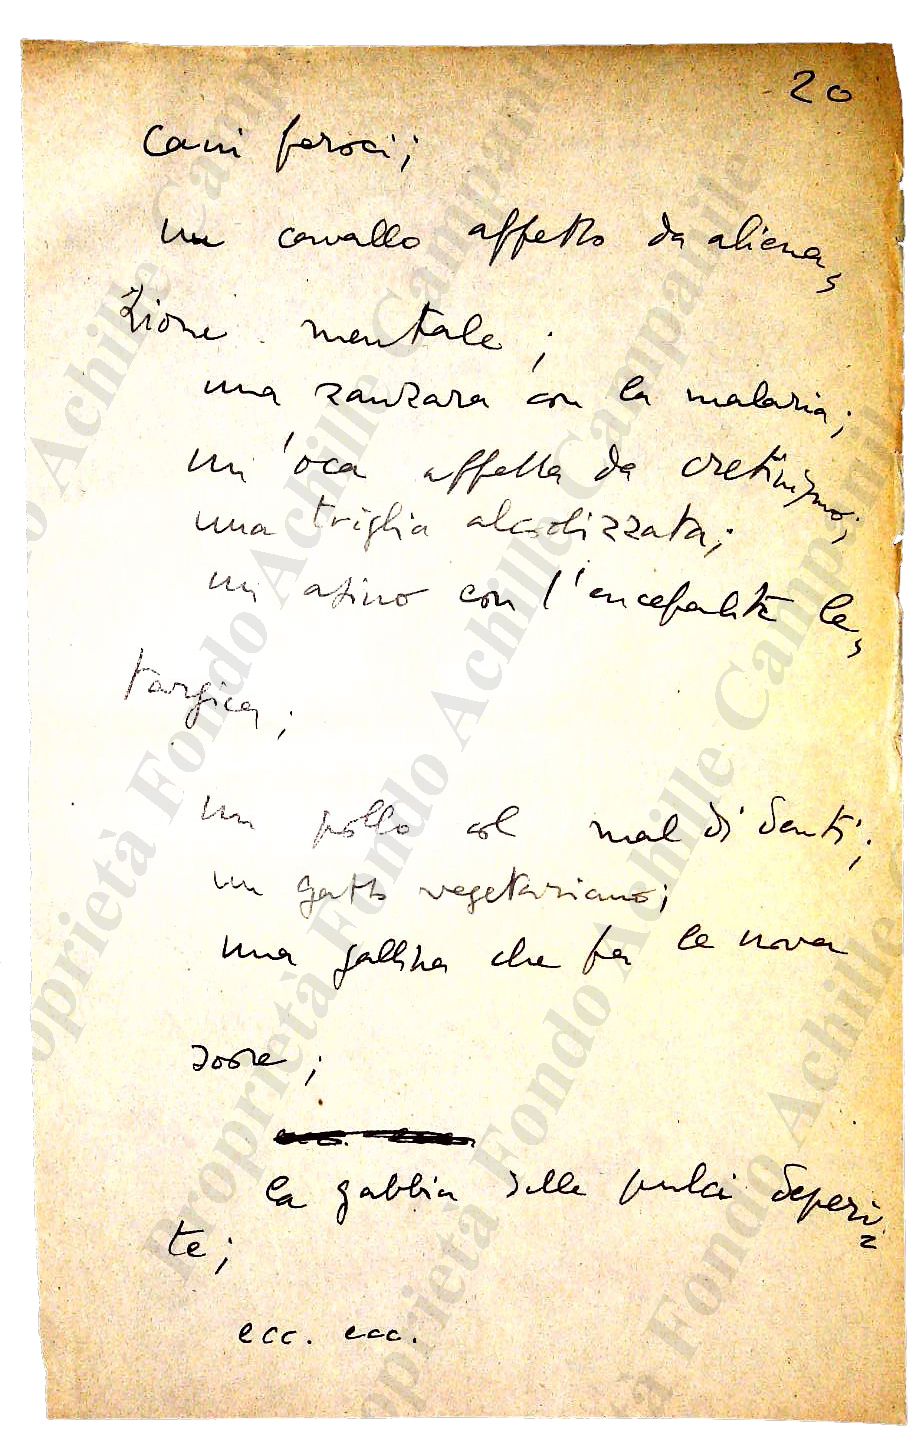 20
cani feroci;
un cavallo affetto da aliena-
zione mentale;
una zanzara con la malaria;
un'oca affetta da cretinismo;
una triglia alcolizzata;
un asino con l'encefalite le-
targica;
un pollo col mal di denti;
un gatto vegetariano;
una gallina che fa le uova
sode;
la gabbia delle pulci deperi-
te;
ecc. ecc.
Proprietà Fondo Achille Campanile